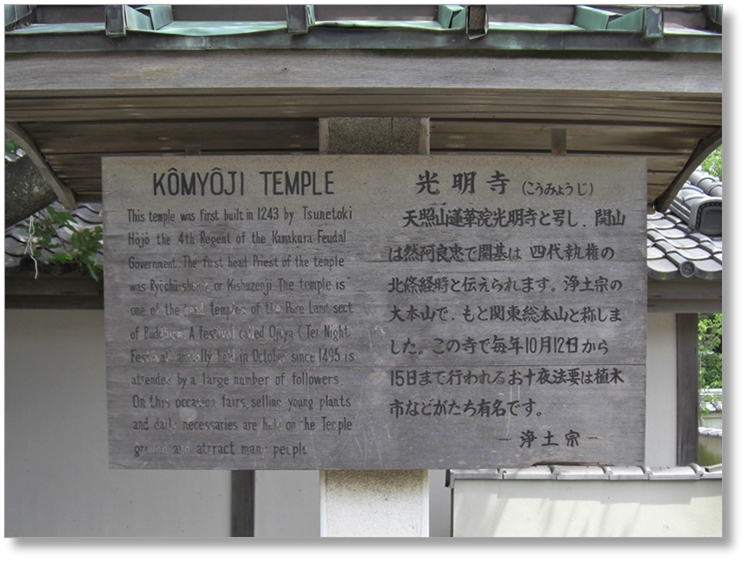 KÔMYÔJI TEMPLE
This temple was first built in 1243 by Tsunetoki
Hōjō the 4th Regent of the Kamakura Feudal
Government. The first head Priest of the temple
was or Kishuzenji The temple is
one of the temples of the Pure Land sect
of A festival called Ojūya (Ten Night
held in October since 1495 is
attended by a large number of followers
On this occasion fairs selling young plants
and daily necessaries are held on the Temple
and attract many people
光明寺（こうみょうじ）
天照山蓮華院光明寺と号し、開山
は然阿良忠で開基は 四代執権の
北條経時と伝えられます。浄土宗の
大本山で、もと関東総本山と称しま
した。この寺で毎年10月12日から
15日まで行われるお十夜法要は植木
市などがたち有名です。
－浄土宗－